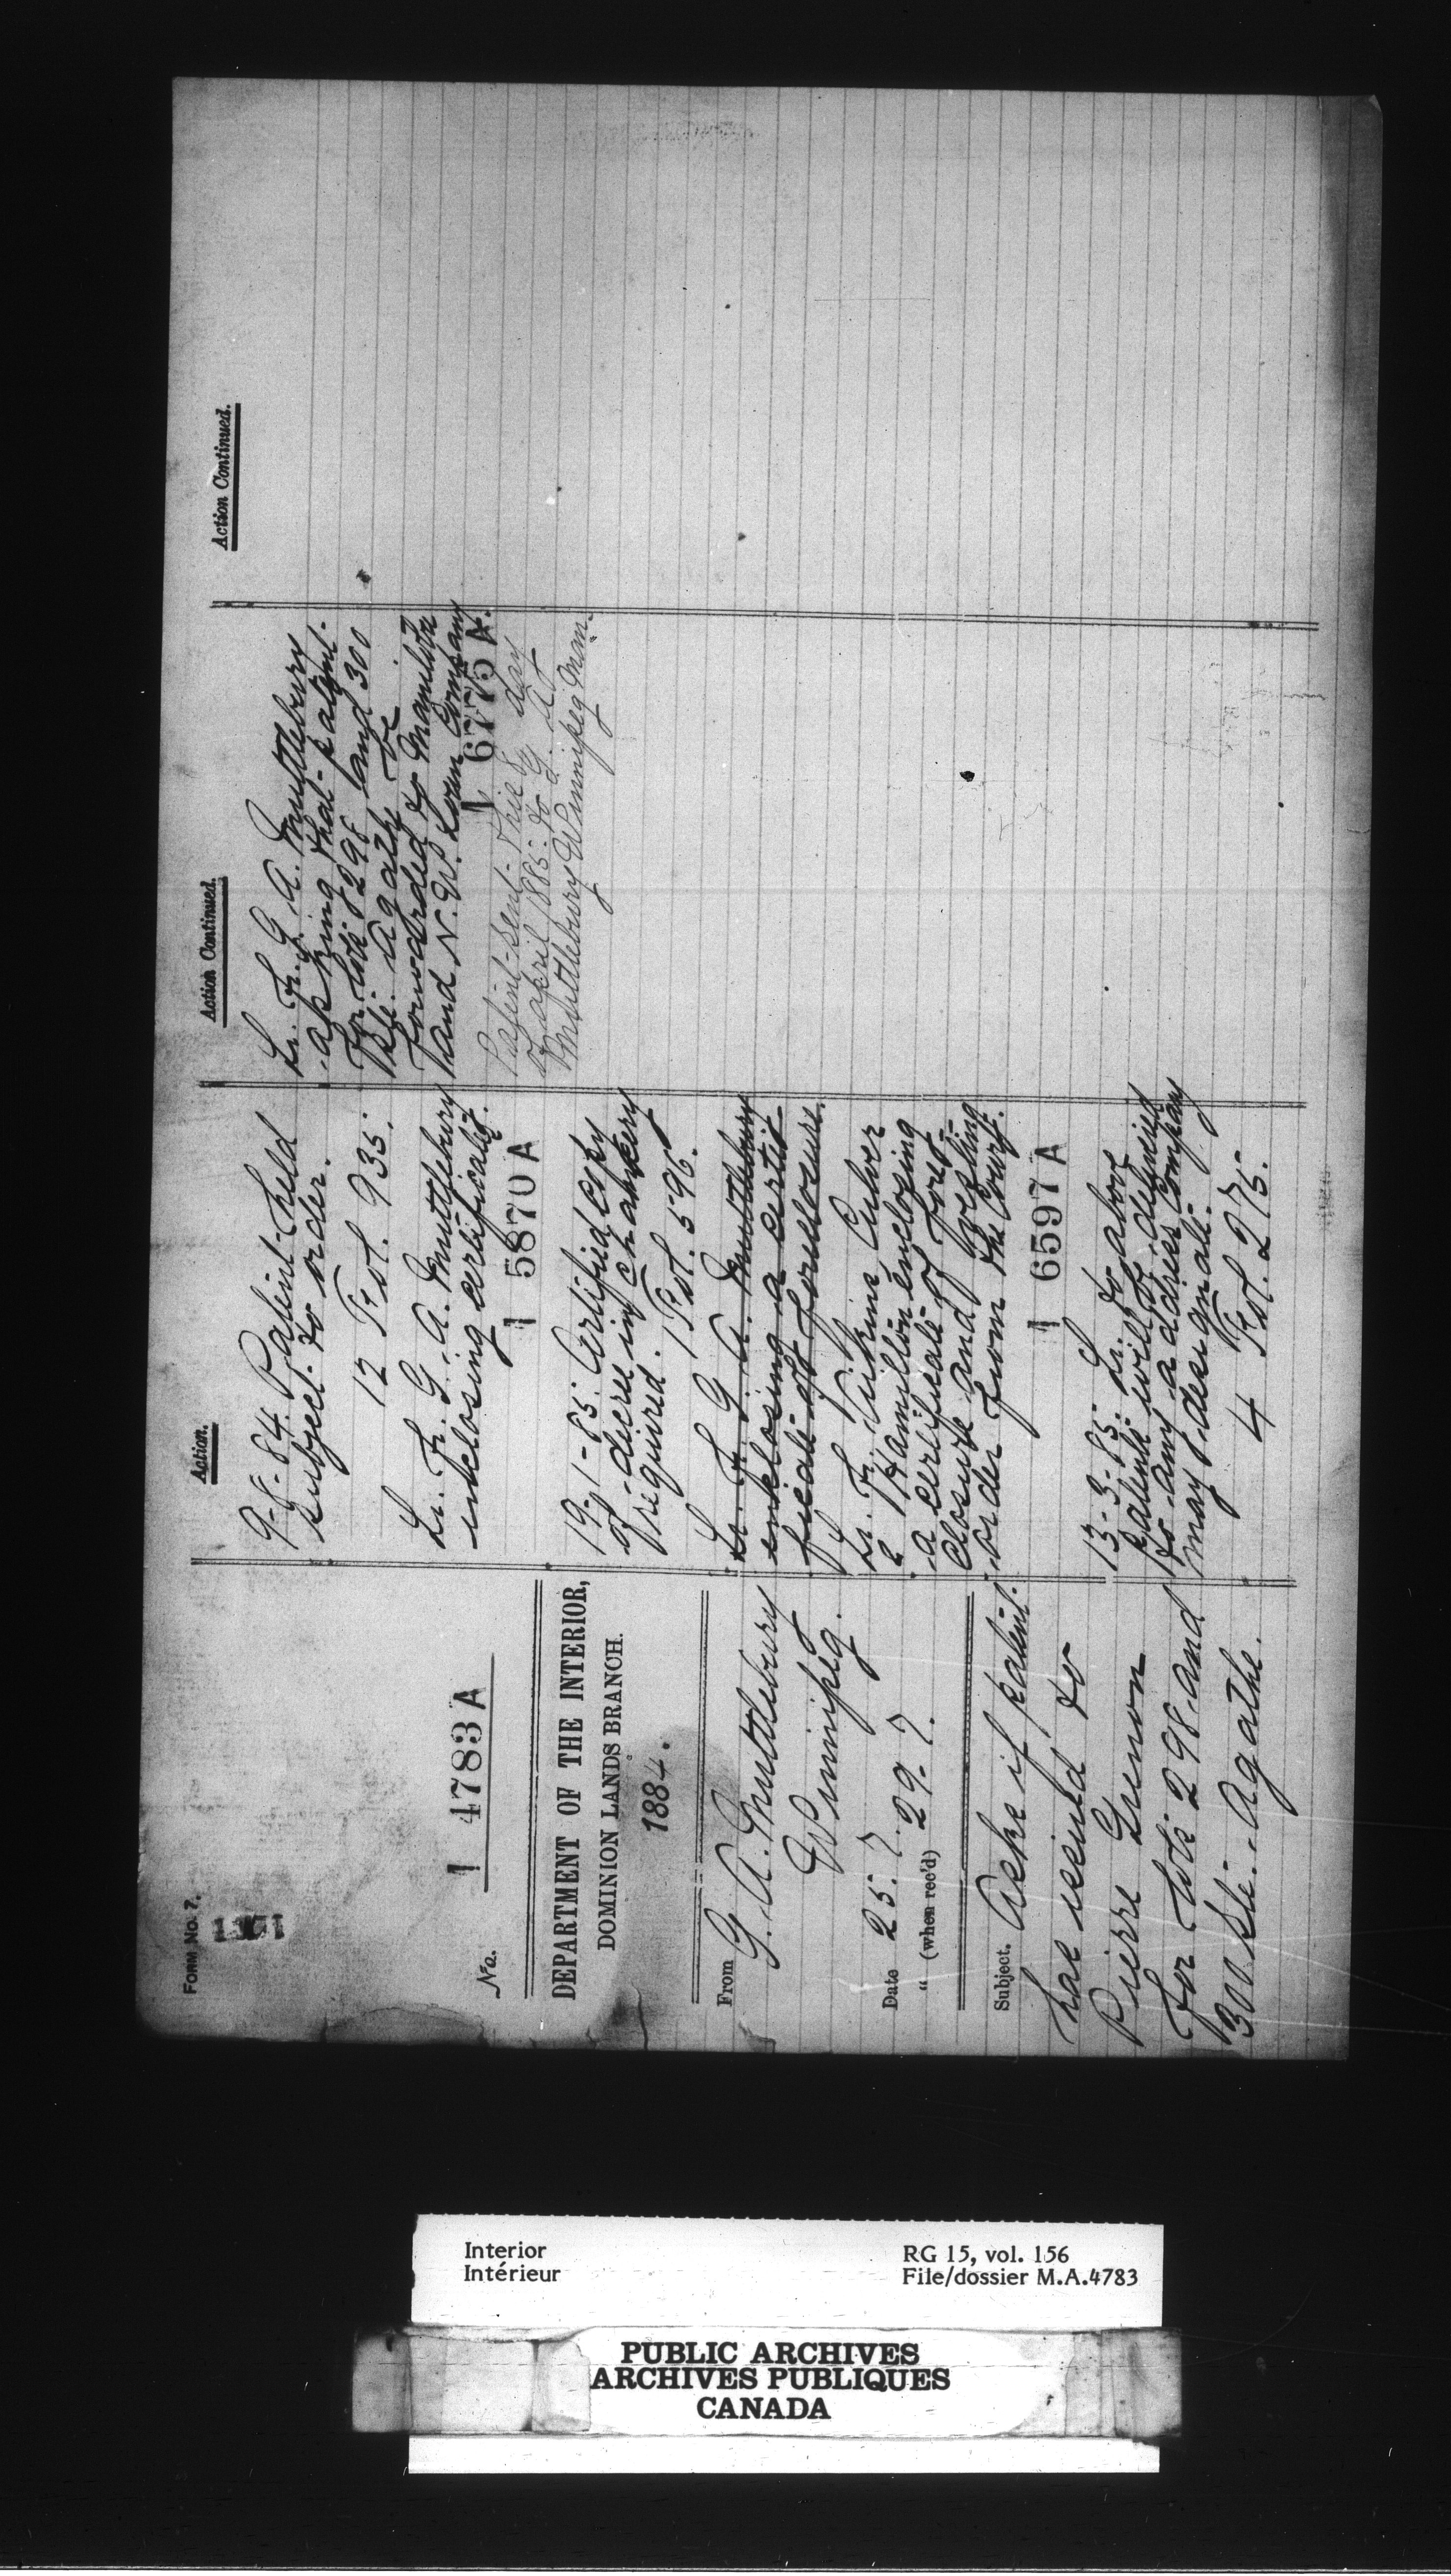 FORM No. 7.
No. 4783 A
DEPARTMENT OF THE INTERIOR,
DOMINION LANDS BRANCH.
1884.
From G. A. Muttlebury
Winnipeg.
Date 25. 7.
" (when rec'd) 29. 7.
Subject. Asks if patent
has issued to
Pierre Grenon
for lots 298 and
300 Ste. Agathe.
Action.
9-8-84. Patent held
subject to order.
12 Fol. 935.
Lr. Fr. G. A. Muttlebury
enclosing certificate.
5870 A
19-1-85. Certified copy
of decree in Chancery
required. 1 Fol. 596.
Lr. Fr. G. A. Muttlebury
enclosing a certif-
icate of foreclosure.
Lr. Fr. Culver
& Hamilton enclosing
a certificate of fore-
closure and vesting
order from the Court.
6597 A
13-3-85. Lr. to above
patents will be delivered
to any address Company
may designate.
4 Fol. 275.
Action Continued.
Lr. Fr. G. A. Muttlebury
asking that patent
for lots 298 and 300
Ste. Agathe be
forwarded to Manitoba
and N. W. Loan Company
6775 A.
Patent sent this 8 day
of April 1885 to G. A.
Muttlebury Winnipeg Man.
Action Continued.
Interior
Intérieur
RG 15, vol. 156
File/dossier M.A.4783
PUBLIC ARCHIVES
ARCHIVES PUBLIQUES
CANADA